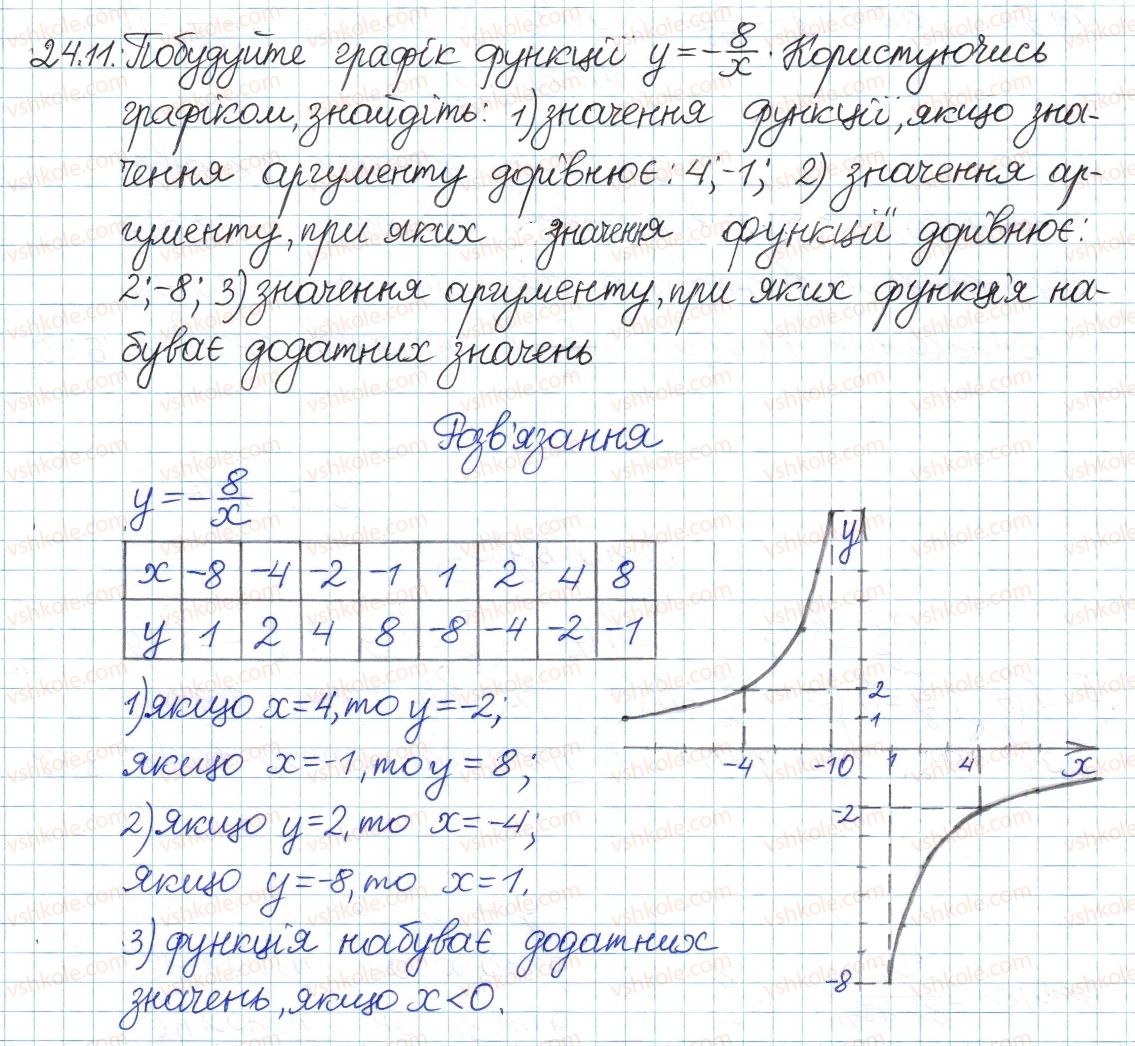 24.11. Побудуйте графік функції y = -8/x. Користуючись
графіком, знайдіть: 1) значення функції, якщо зна-
чення аргументу дорівнює: 4; -1; 2) значення ар-
гументу, при яких значення функції дорівнює:
2; -8; 3) значення аргументу, при яких функція на-
буває додатних значень
Розв'язання
y = -8/x
x -8 -4 -2 -1 1 2 4 8
y 1 2 4 8 -8 -4 -2 -1
1) якщо x = 4, то y = -2;
якщо x = -1, то y = 8;
2) якщо y = 2, то x = -4;
якщо y = -8, то x = 1.
3) функція набуває додатних
значень, якщо x < 0.
y
2
1
-4 -1 0 1 4 x
-2
-8
vshkole.com